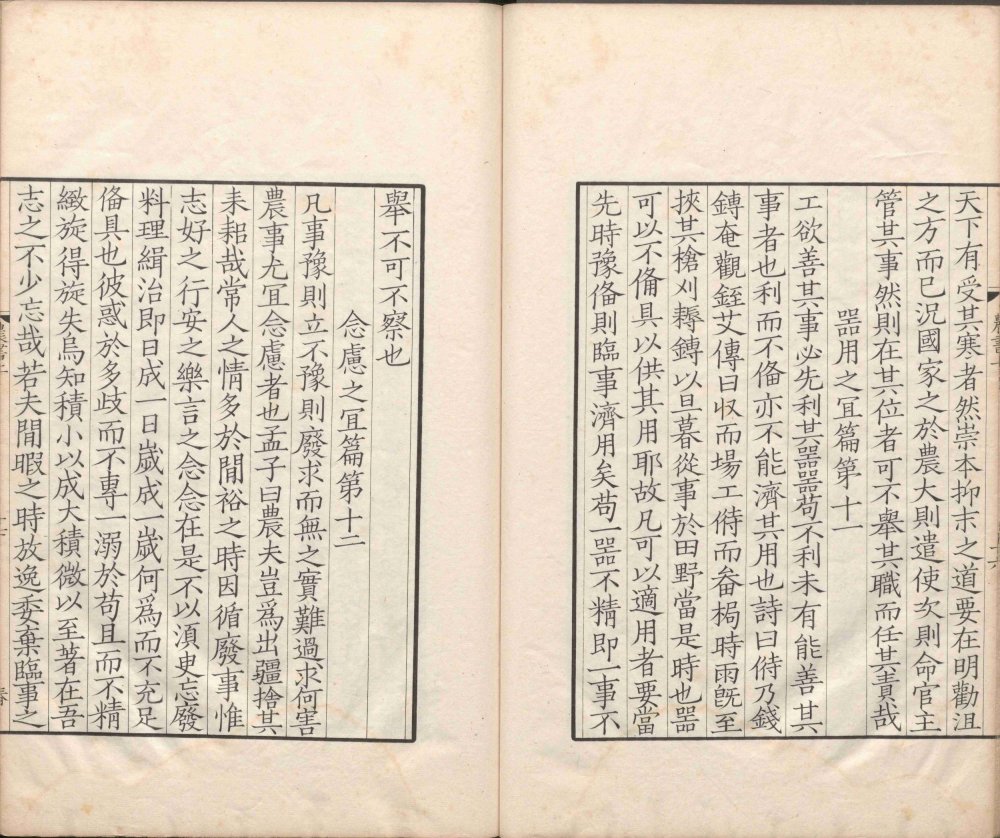 天下有受其寒者然崇本抑末之道要在明勸沮
之方而已況國家之於農大則遣使次則命官主
管其事然則在其位者可不舉其職而任其責哉
器用之冝篇第十一
工欲善其事必先利其器器苟不利未有能善其
事者也利而不偹亦不能濟其用也詩曰偫乃錢
鎛奄觀銍艾傳曰収而場工偫而畚梮時雨旣至
挾其槍刈耨鎛以旦暮從事於田野當是時也器
可以不偹具以供其用耶故凡可以適用者要當
先時豫偹則臨事濟用矣苟一器不精即一事不
舉不可不察也
念慮之冝篇第十二
凡事豫則立不豫則廢求而無之實難過求何害
農事尤冝念慮者也孟子曰農夫豈爲出疆捨其
耒耜哉常人之情多於閒裕之時因循廢事惟
志好之行安之樂言之念念在是不以湏臾忘廢
料理緝治即日成一日歲成一歲何爲而不充足
偹具也彼惑於多歧而不專一溺於苟且而不精
緻旋得旋失烏知積小以成大積微以至著在吾
志之不少忘哉若夫閒暇之時放逸委棄臨事之